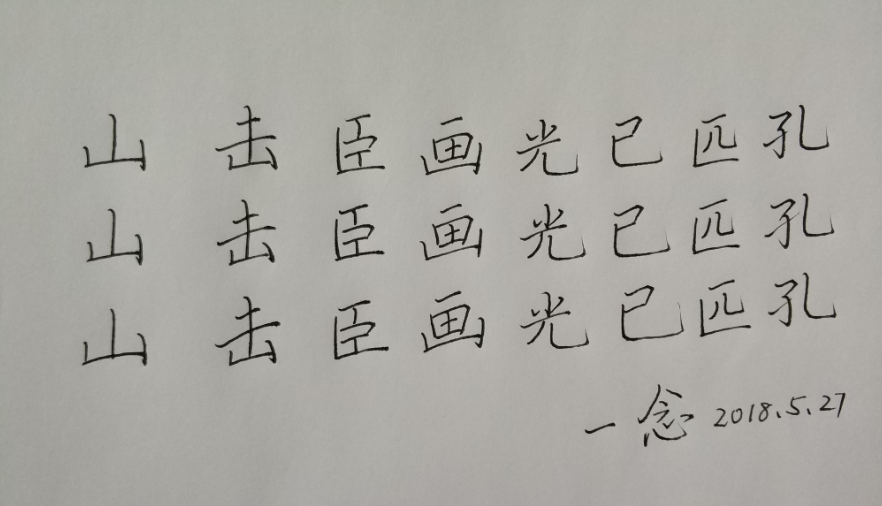 山 击 臣 画 光 已 匹 孔
山 击 臣 画 光 已 匹 孔
山 击 臣 画 光 已 匹 孔
一念 2018.5.27